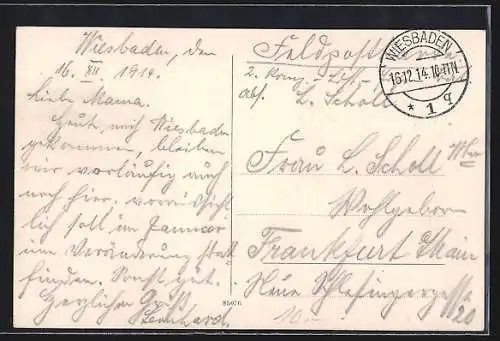 Wiesbaden, den
16. XII. 1914.
Liebe Mama.
Heute nach Wiesbaden
gekommen, bleiben
wir vorläufig auch
noch hier. voraussicht
lich soll im Januar
eine Veränderung statt
finden. Sonst gut.
Herzlichen Gruß
Feldpost
2. Komp.
Abs. L. Scholl
WIESBADEN
16.12.14.
* 1 q
Frau L. Scholl
Wohlgeboren
Frankfurt Main
Neue Schlesingergasse
20
10.-